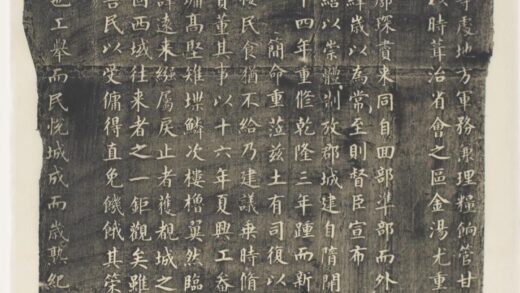 處地方軍務兼理糧餉管甘
以時葺治省會之區金湯尤重
琛賮來同自回部準部而外
歲以為常至則督臣宣布
以崇體制放郡城建自隋開
十四年重脩乾隆三年踵而新
簡命重蒞茲土有司復以
民食猶不給乃建議乘時脩
董其事以十六年夏興工畚
墉高堅雉堞鱗次樓櫓翼然臨
遠來繦屬戾止者獲覩城之
西域往來者之一鉅觀矣雖
民以受傭得直免饑餓其
工舉而民悅城成而歲紀